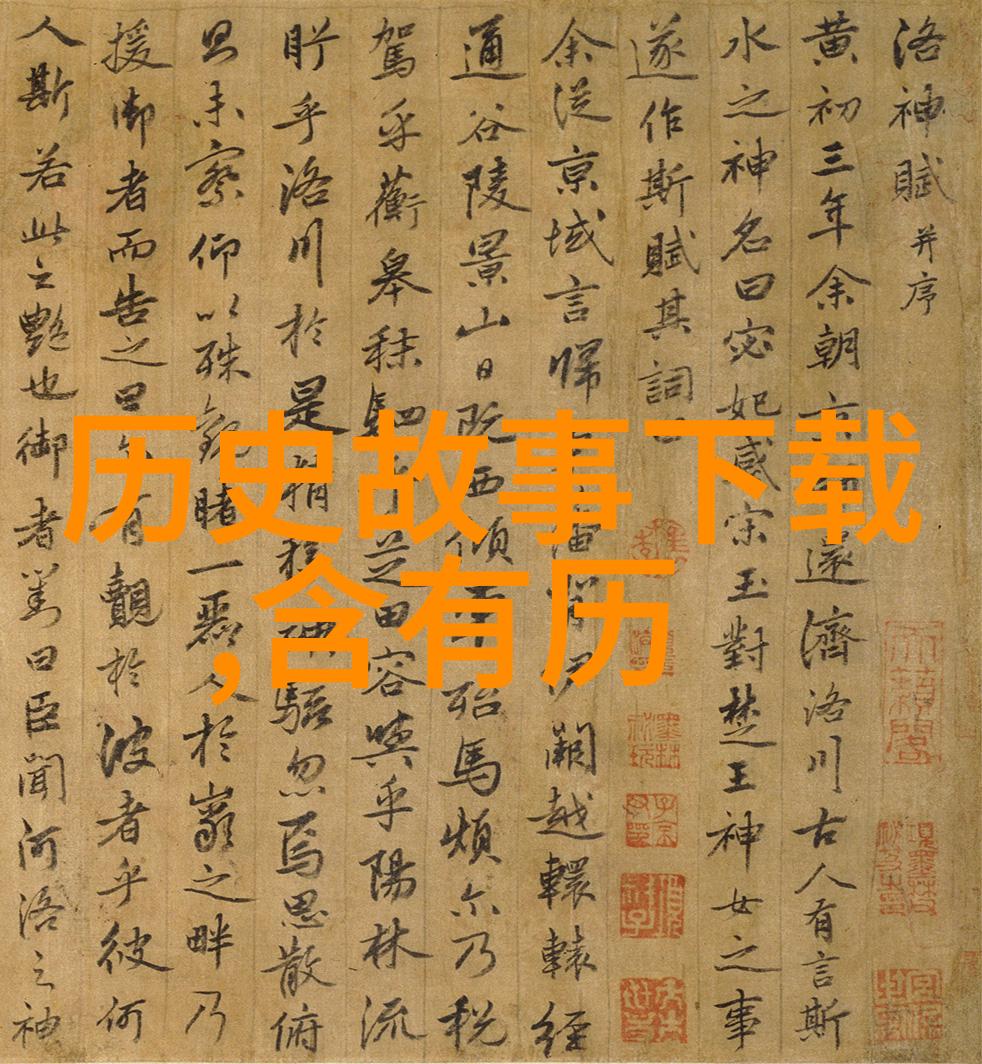 洛神賦 并序
黄初三年余朝京師還濟洛川古人有言斯
水之神名曰宓妃感宋玉對楚王神女之事
遂作斯賦其詞曰
余從京域言歸東藩背伊闕越轘轅經
通谷陵景山日既西傾車殆馬煩尒乃税
駕乎蘅皋秣駟乎芝田容與乎陽林流
眄乎洛川於是精移神駭忽焉思散俯
則未察仰以殊觀睹一麗人於巖之畔乃
援御者而告之曰尒有覿於彼者乎彼何
人斯若此之艷也御者對曰臣聞河洛之神
历史故事下载
,含有历